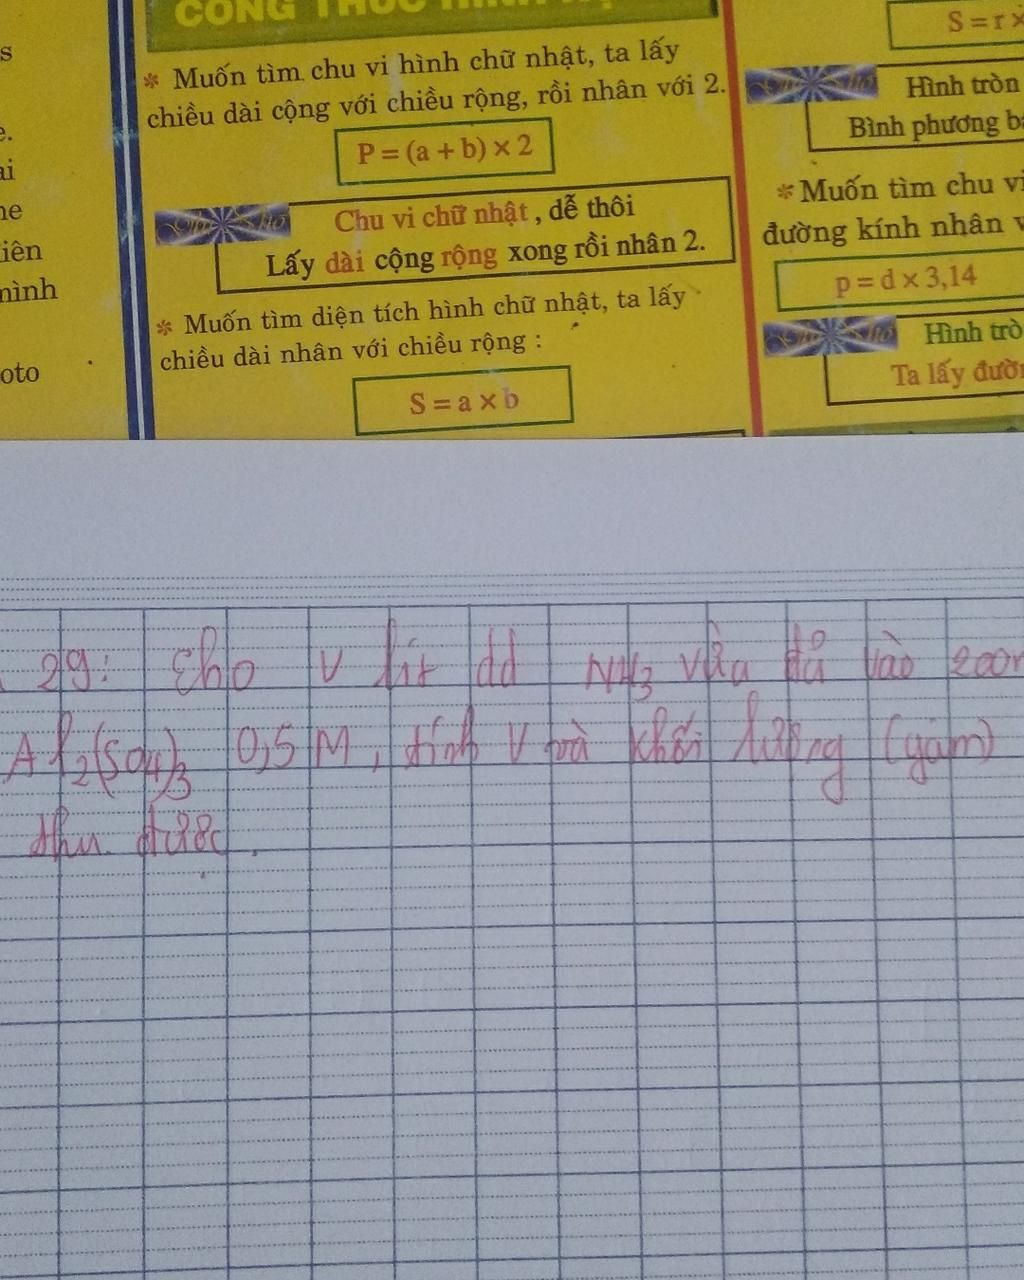 CÔNG THỨC HÌNH
* Muốn tìm chu vi hình chữ nhật, ta lấy
chiều dài cộng với chiều rộng, rồi nhân với 2.
P = (a + b) × 2
Chu vi chữ nhật, dễ thôi
Lấy dài cộng rộng xong rồi nhân 2.
* Muốn tìm diện tích hình chữ nhật, ta lấy
chiều dài nhân với chiều rộng :
S = a × b
s
e.
ai
he
iên
mình
oto
S = r ×
Hình tròn
Bình phương b
* Muốn tìm chu vi
đường kính nhân v
p = d × 3,14
Hình trò
Ta lấy đườn
29: Cho V lít dd NH3 vừa đủ vào 200m
Al2(SO4)3 0,5M, tính V và khối lượng (gam)
thu được.